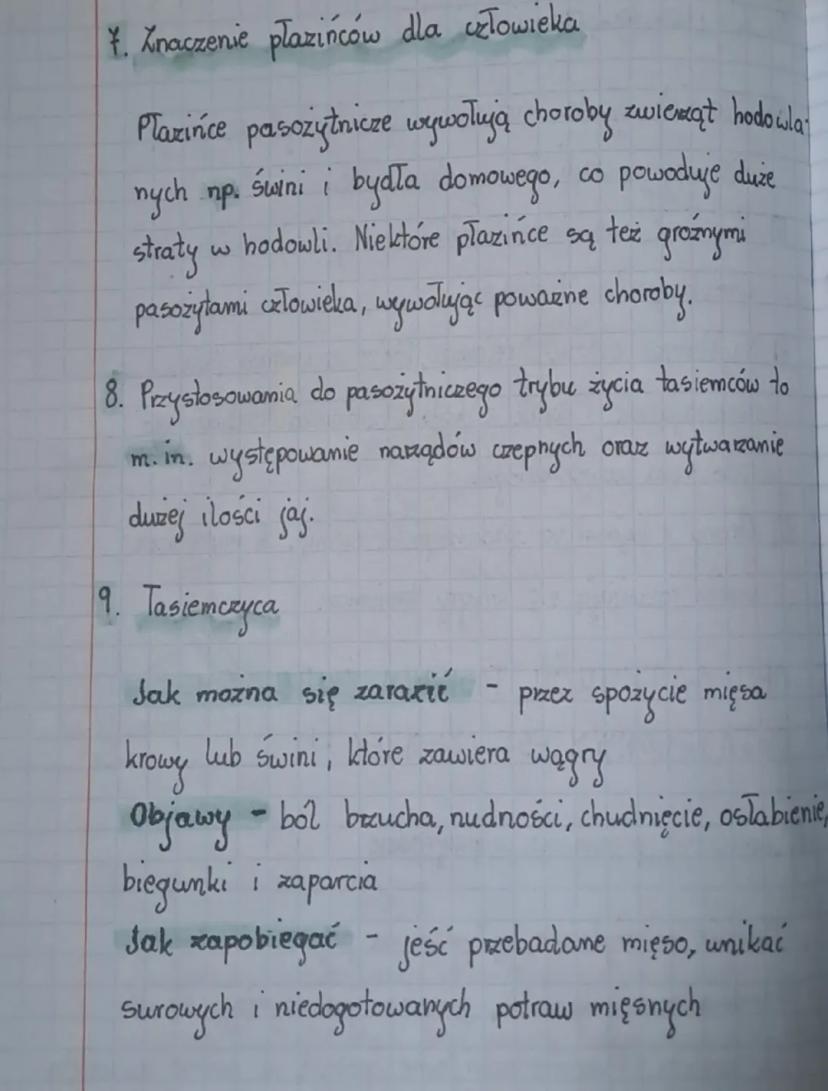 7. Znaczenie płazińców dla człowieka
Płazińce pasożytnicze wywołują choroby zwierząt hodowla-
nych np. świni i bydła domowego, co powoduje duże
straty w hodowli. Niektóre płazińce są też groźnymi
pasożytami człowieka, wywołując poważne choroby.
8. Przystosowania do pasożytniczego trybu życia tasiemców to
m. in. występowanie narządów czepnych oraz wytwarzanie
dużej ilości jaj.
9. Tasiemczyca
Jak można się zarazić - przez spożycie mięsa
krowy lub świni, które zawiera wągry
Objawy - ból brzucha, nudności, chudnięcie, osłabienie,
biegunki i zaparcia
Jak zapobiegać - jeść przebadane mięso, unikać
surowych i niedogotowanych potraw mięsnych